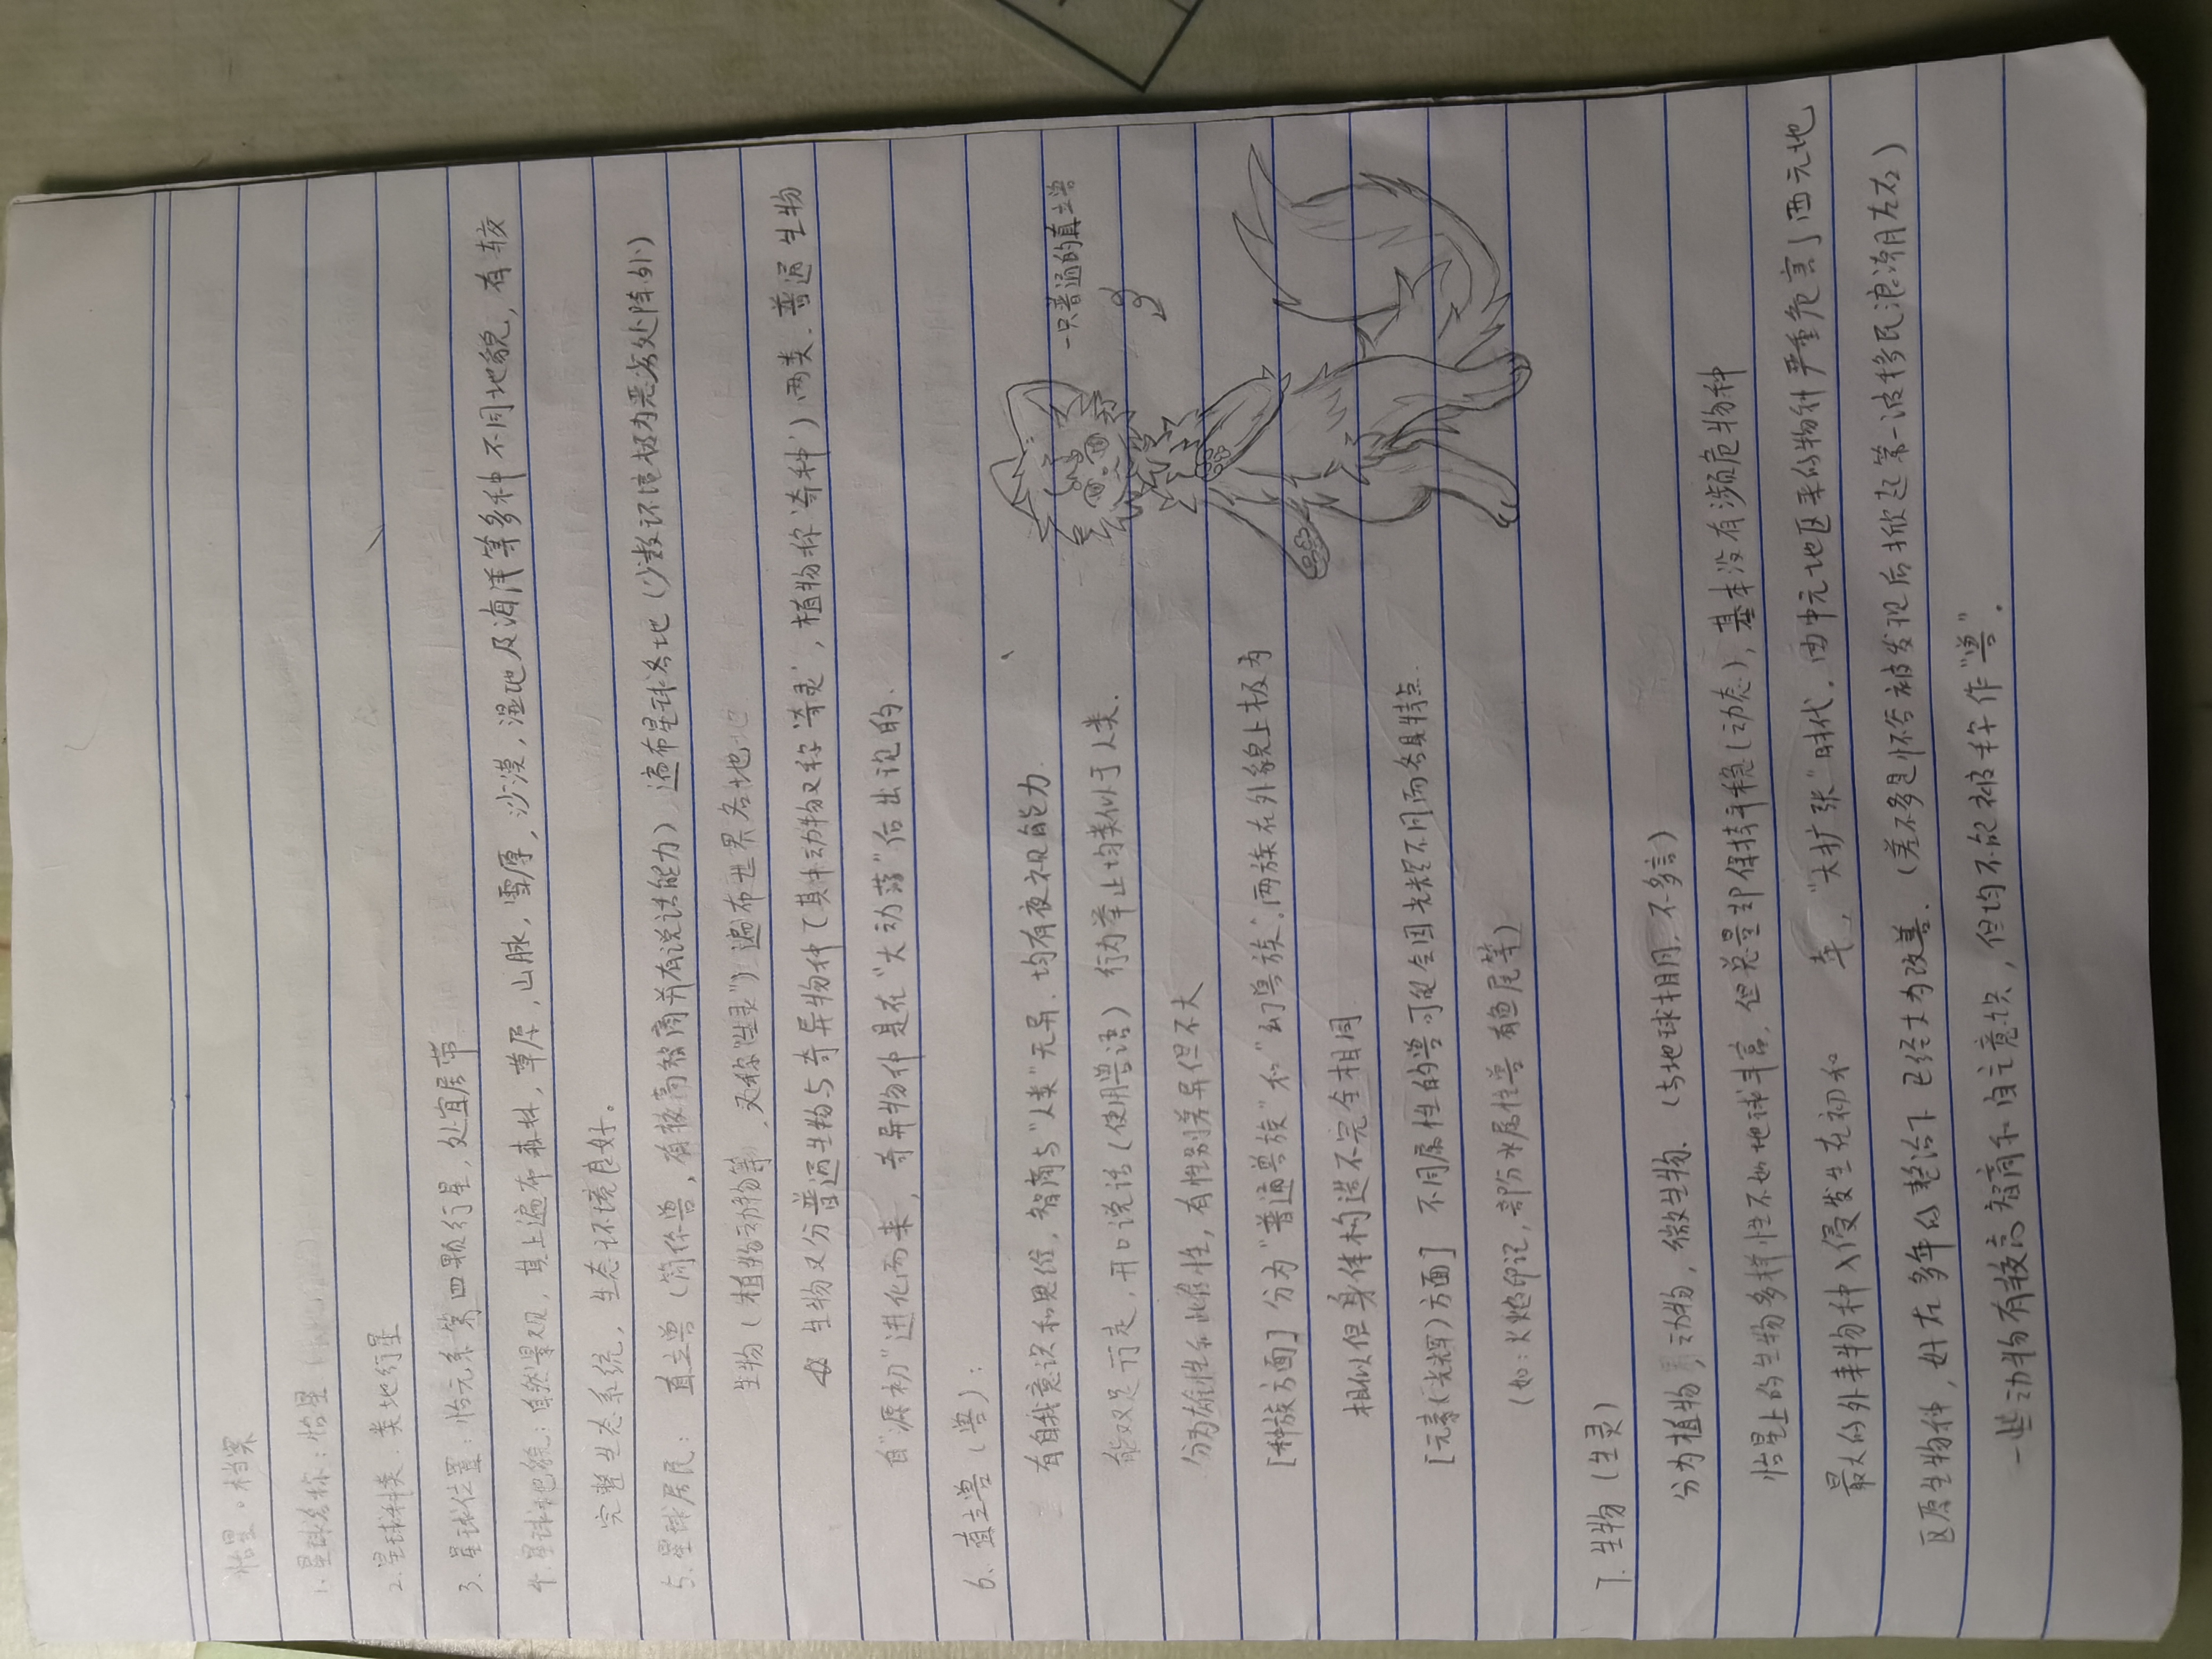 怡星·档案
1.星球名称：怡星
2.星球种类：类地行星
3.星球位置：怡元系第四颗行星，处宜居带
4.星球地貌：自然景观，其上遍布森林，草原，山脉，雪厚，沙漠，湿地及海洋等多种不同地貌，有较
完整生态系统，生态环境良好。
5.星球居民：直立兽（简作兽，有较高智商并有说话能力）遍布星球各地（少数环境极为恶劣处除外）
生物（植物动物等，又称“生灵”）遍布世界各地
生物又分普通生物与奇异物种（其中动物又称‘奇灵’，植物称‘奇种’）两类．普通生物
自“源初”进化而来，奇异物种是在“大动荡”后出现的．
6.直立兽（兽）：
一只普通的直立兽
有自我意识和思维，智商与“人类”无异．均有夜视能力．
能双足行走，开口说话（使用兽语）行为举止均类似于人类．
分为雄性和雌性，有性别差异但不大
[种族方面] 分为“普通兽族”和“幻兽族”．两族在外貌上极为
相似但身体构造不完全相同
[元素（光辉）方面] 不同属性的兽可能会因光辉不同而各具特点
（如：火焰印记，部分水属性兽有鱼尾等）
7.生物（生灵）
分为植物，动物，微生物．（与地球相同．不多言）
怡星上的生物多样性不如地球丰富，但总量却保持平稳（动态），基本没有濒危物种
最大的外来物种入侵发生在初和 年．“大扩张”时代．由中元地区来的物种严重危害了西元地
区原生物种，好在多年的整治下已经大为改善．（差不多是 被发现后掀起第一波移民浪潮左右）
一些动物有较高智商和自主意识，但均不能被称作“兽”．